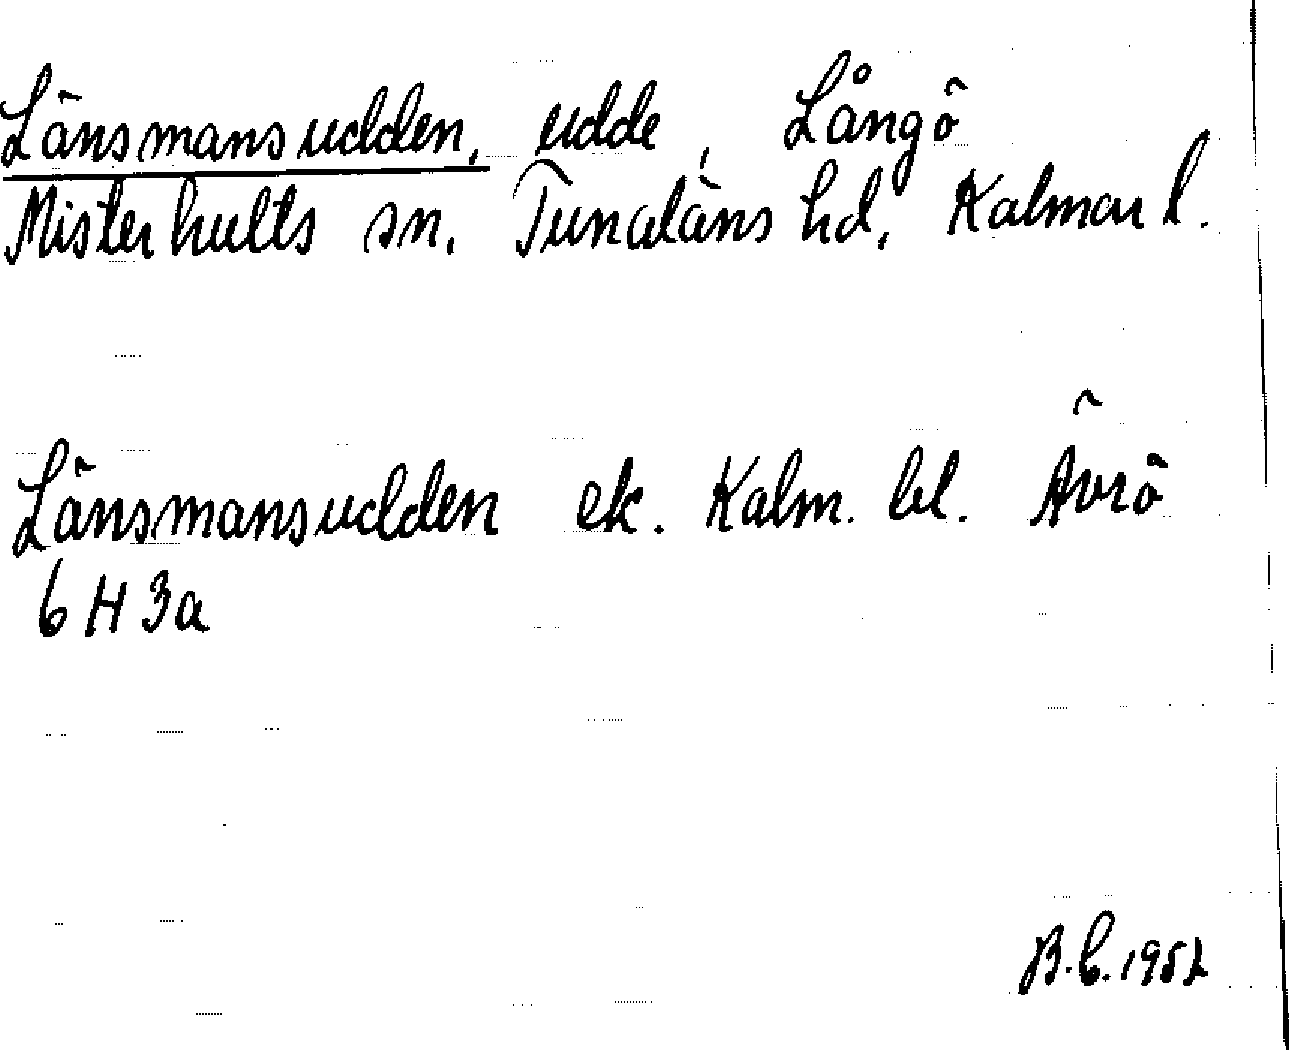 Länsmansudden, udde, Långö
Misterhults sn. Tunaläns hd, Kalmar l.
Länsmansudden ek. Kalm. bl. Ävrö
6 H 3a
B.C. 1952